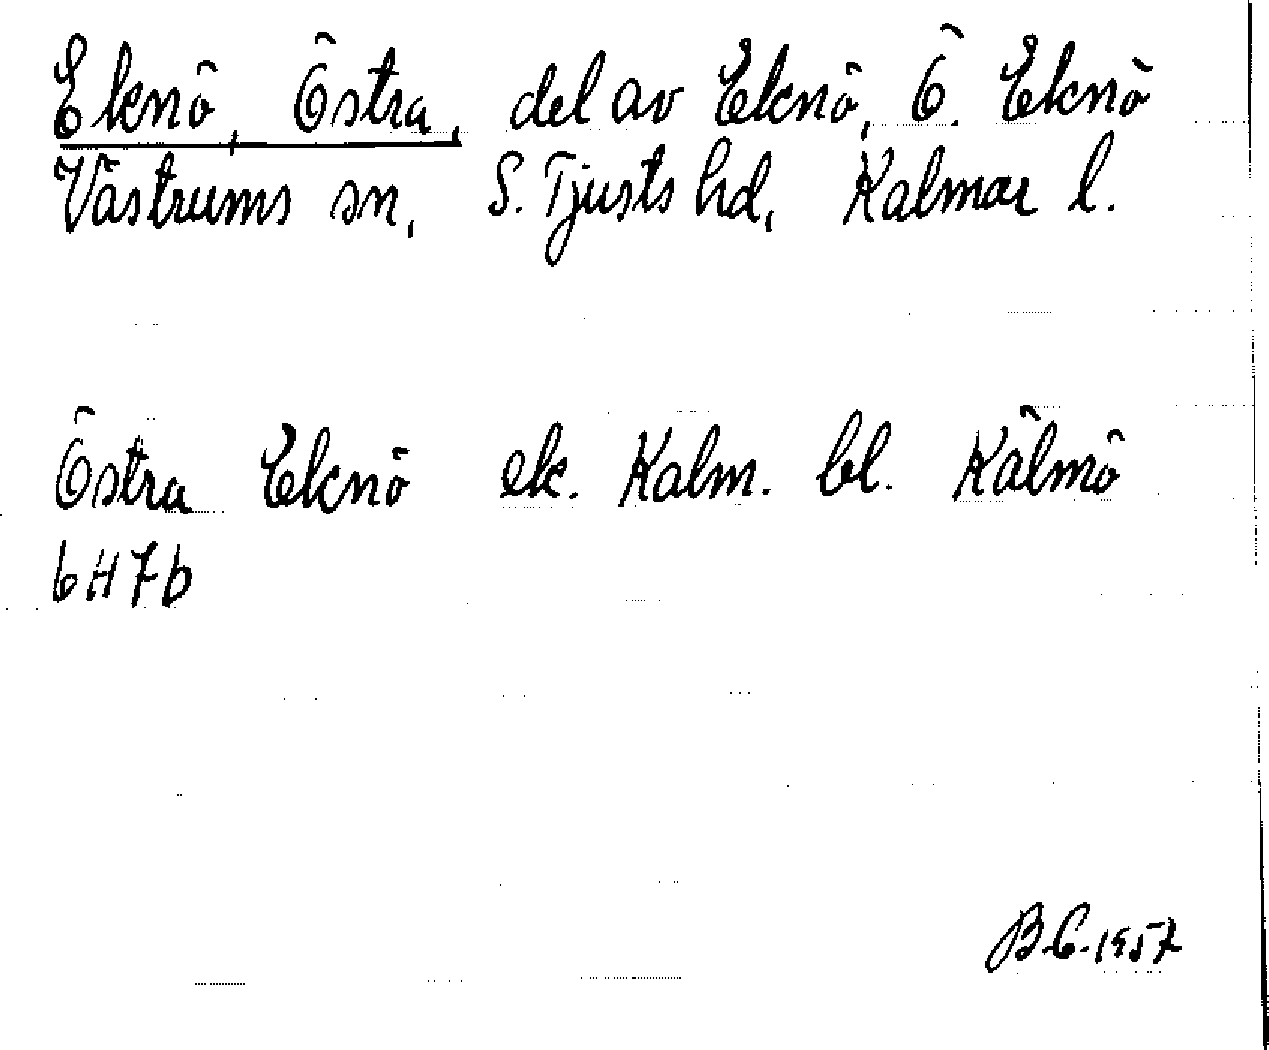 Eknö, Östra, del av Eknö, Ö. Eknö
Västrums sn, S. Tjusts hd, Kalmar l.
Östra Eknö ek. Kalm. bl. Kälmö
6H7b
B.C. 1957